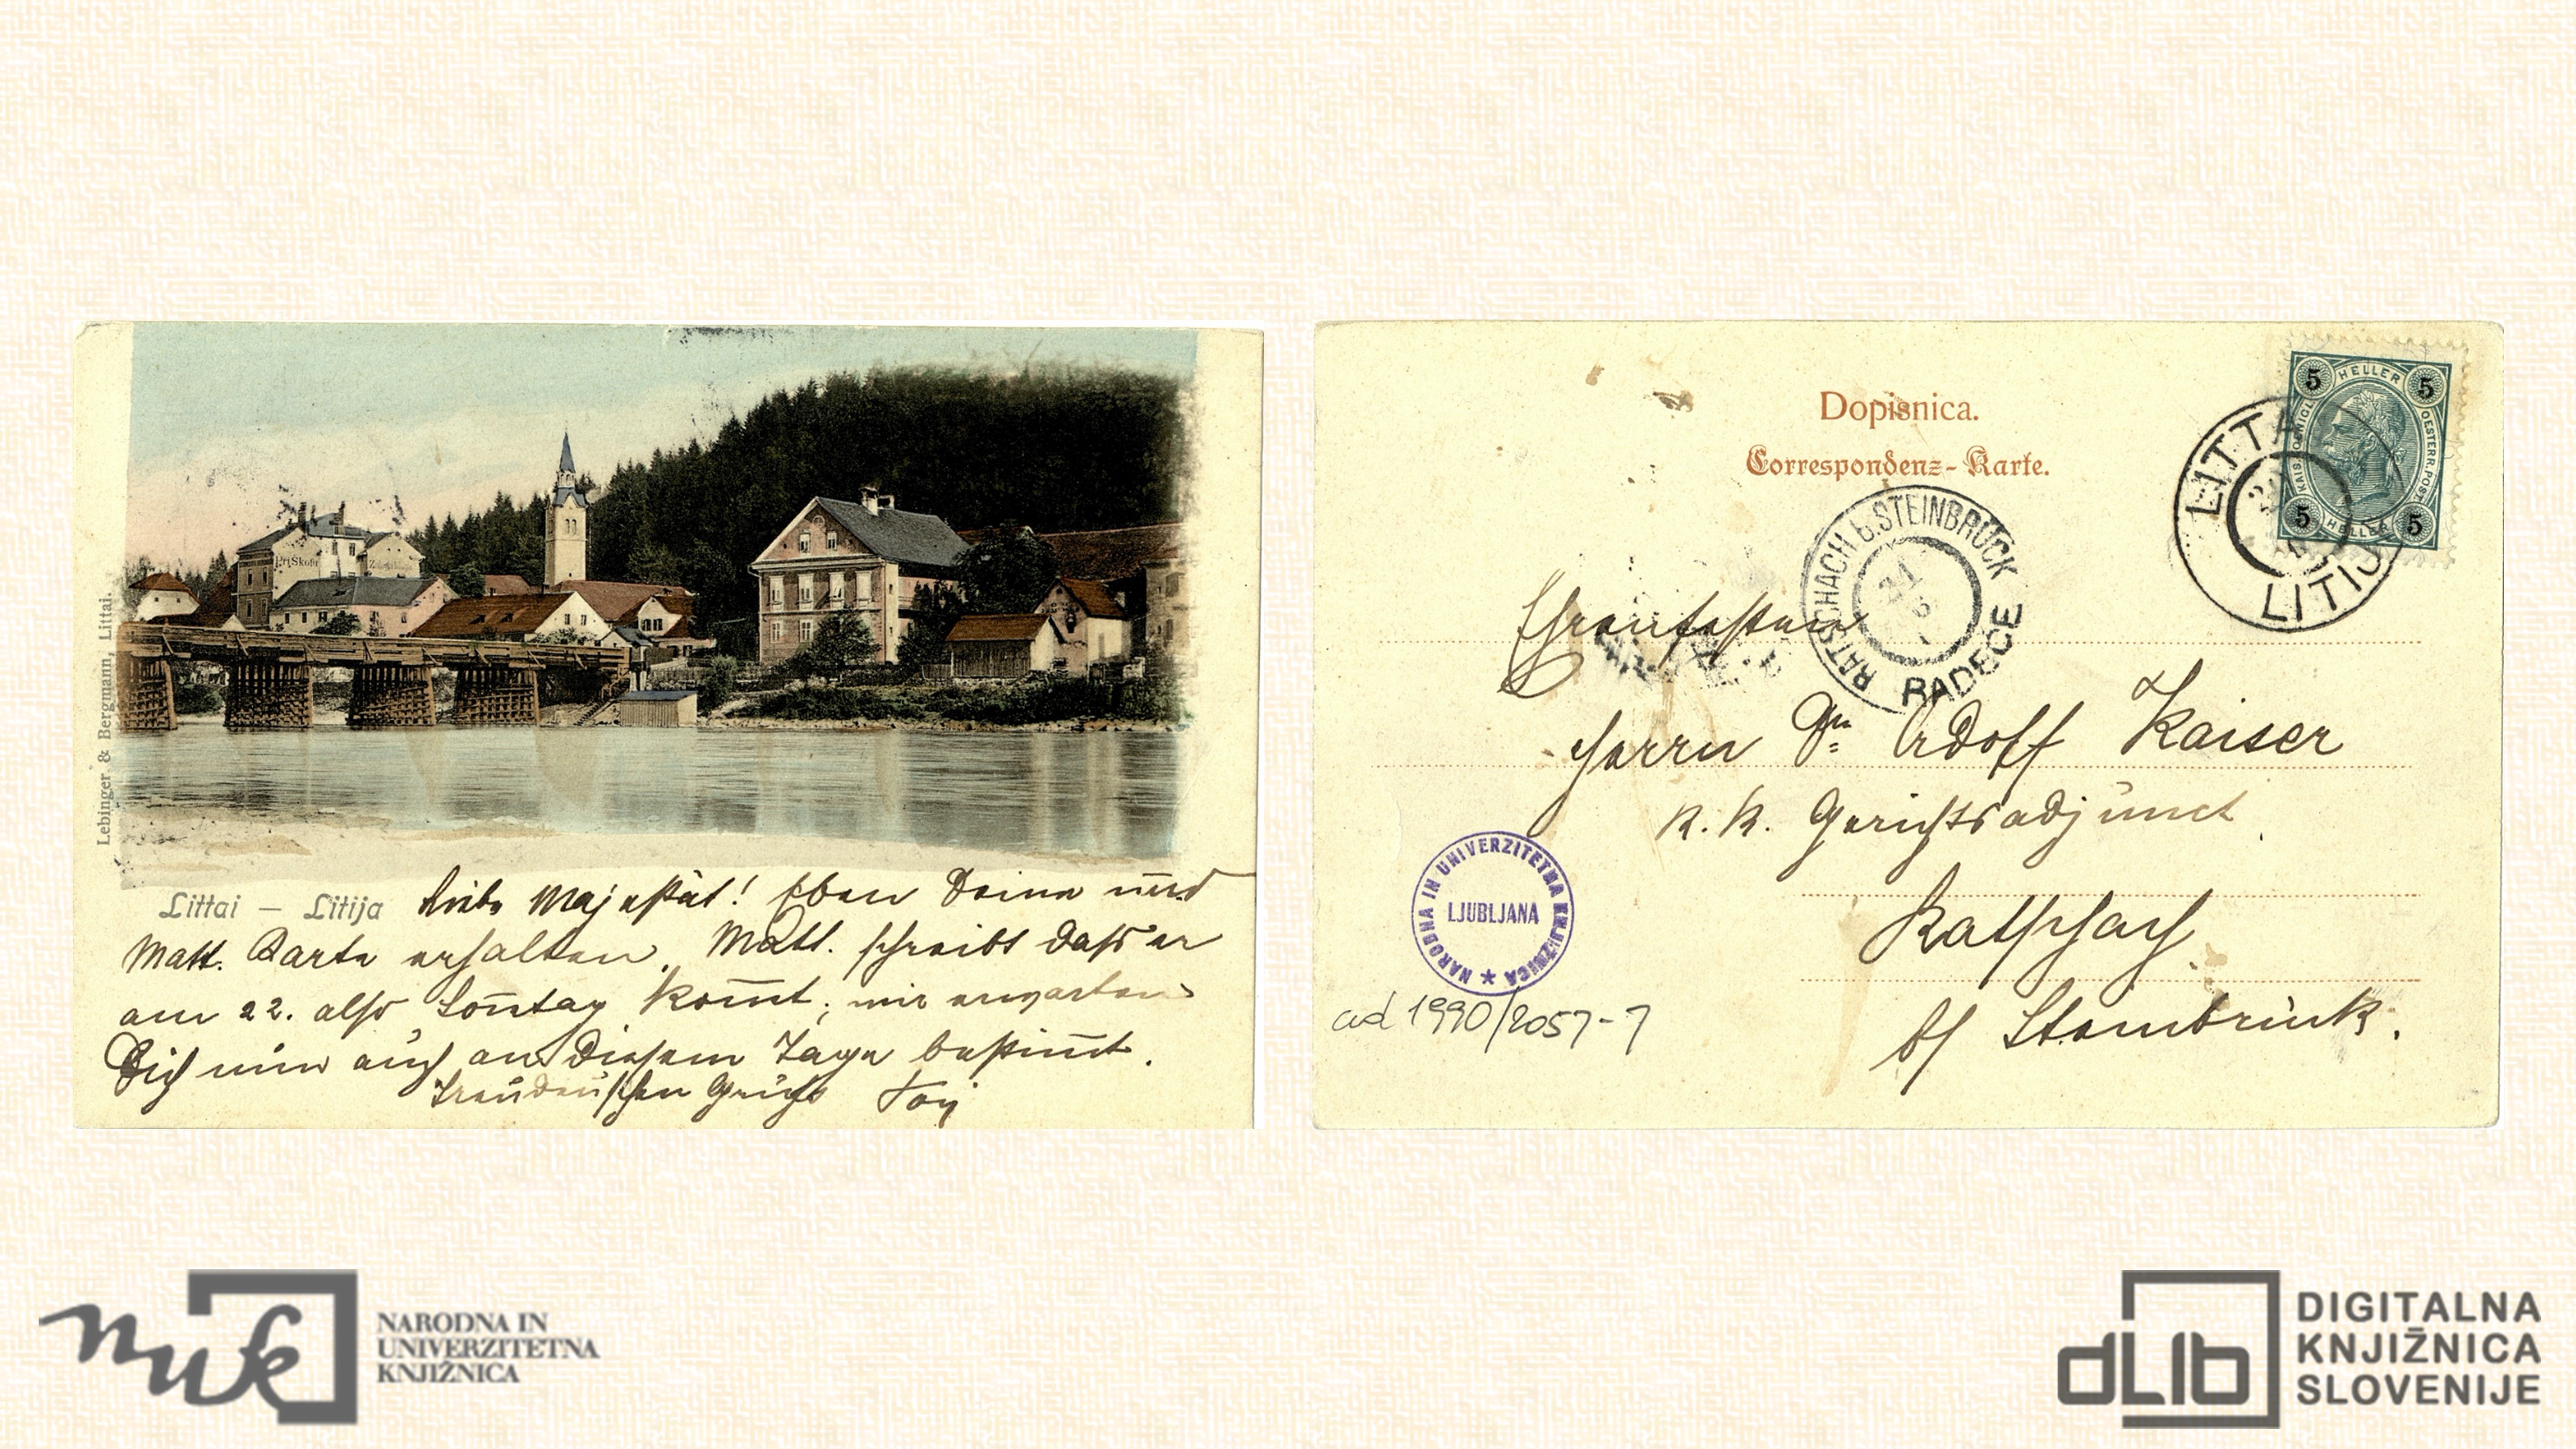 Lebinger & Bergmann, Littai.
Littai – Litija
Liebe Majestät! Eben Deine und
Matt. Karte erhalten. Matt. schreibt daß er
am 22. also Son̄tag kom̄t; wir erwarten
Dich nun auch an diesem Tage bestim̄t.
Treudeutschen Gruß
Dopisnica.
Correspondenz-Karte.
5 HELLER 5
KAIS. KÖNIGL. OESTERR. POST
5 HELLER 5
LITTAI
LITIJA
RATSCHACH b. STEINBRÜCK
RADEČE
Herrn Dr Adolf Kaiser
K. K. Gerichtsadjunct
Ratschach
b/ Steinbrück.
NARODNA IN UNIVERZITETNA KNJIŽNICA ★
LJUBLJANA
ad 1990/2057-7
nuk
NARODNA IN
UNIVERZITETNA
KNJIŽNICA
dLib
DIGITALNA
KNJIŽNICA
SLOVENIJE